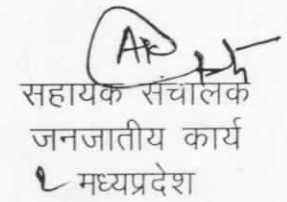 सहायक संचालक
जनजातीय कार्य
मध्यप्रदेश